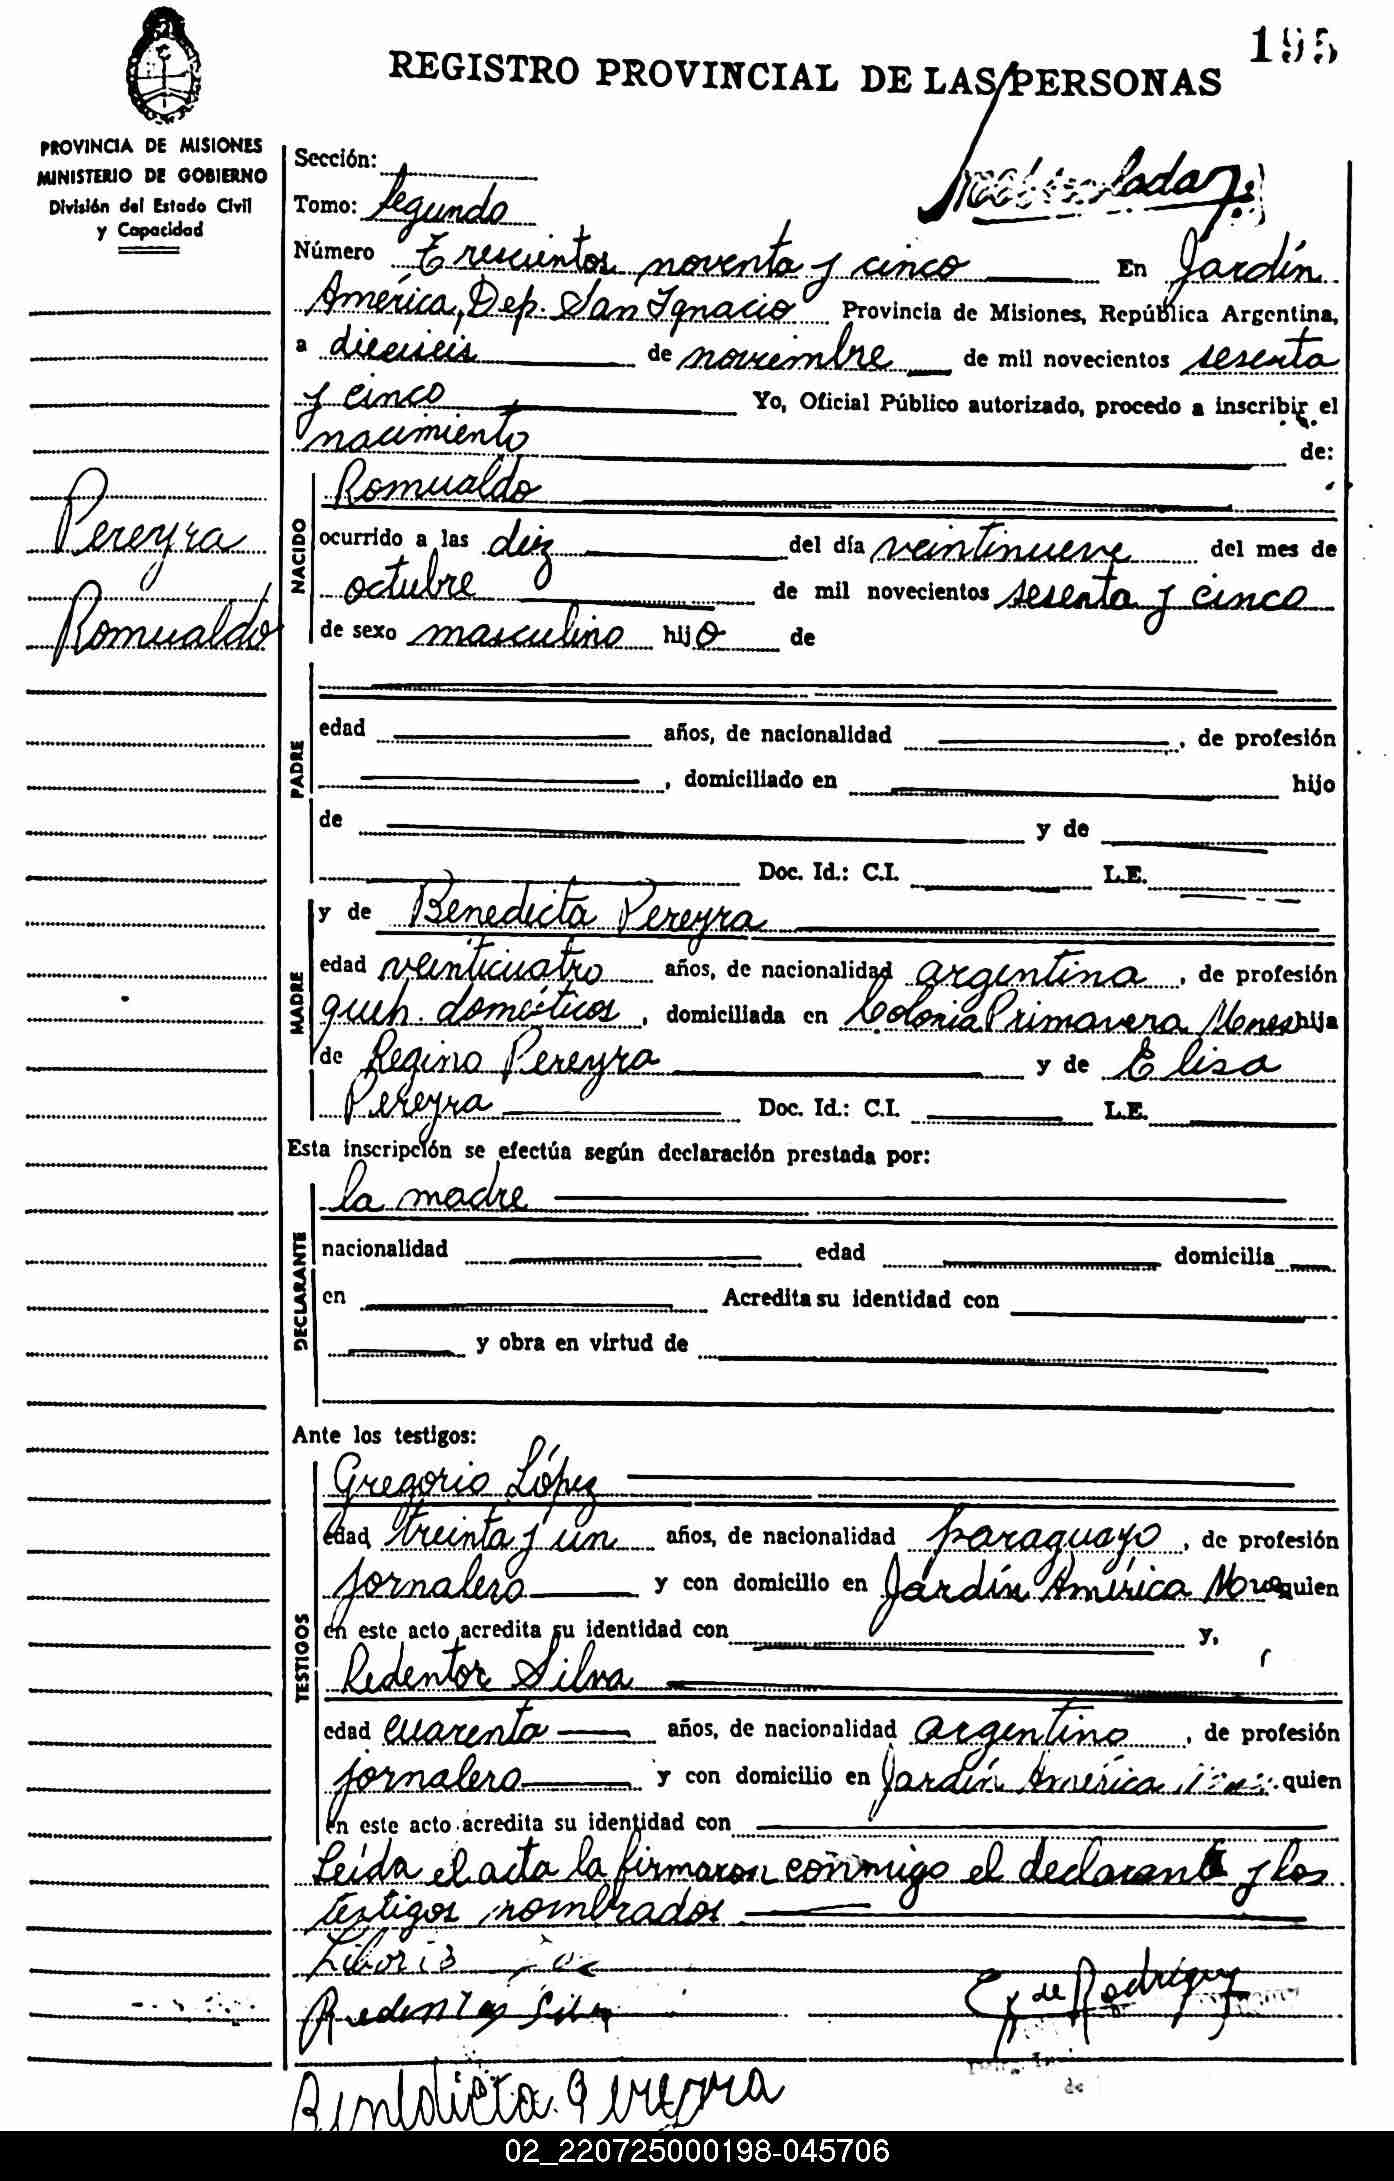 195
REGISTRO PROVINCIAL DE LAS PERSONAS
PROVINCIA DE MISIONES
MINISTERIO DE GOBIERNO
División del Estado Civil
y Capacidad
Sección:
Tomo: Segundo
Número Trescientos noventa y cinco En Jardín
América, Dep. San Ignacio Provincia de Misiones, República Argentina,
a dieciseis de noviembre de mil novecientos sesenta
y cinco Yo, Oficial Público autorizado, procedo a inscribir el
nacimiento de:
Pereyra
Romualdo
NACIDO
Romualdo
ocurrido a las diez del día veintinueve del mes de
octubre de mil novecientos sesenta y cinco
de sexo masculino hijo de
PADRE
edad años, de nacionalidad , de profesión
, domiciliado en hijo
de y de
Doc. Id.: C.I. L.E.
MADRE
y de Benedicta Pereyra
edad veinticuatro años, de nacionalidad argentina , de profesión
queh. domésticos , domiciliada en Colonia Primavera hija
de Regino Pereyra y de Elisa
Pereyra Doc. Id.: C.I. L.E.
Esta inscripción se efectúa según declaración prestada por:
DECLARANTE
la madre
nacionalidad edad domicilia
en Acredita su identidad con
y obra en virtud de
Ante los testigos:
TESTIGOS
Gregorio López
edad treinta y un años, de nacionalidad paraguayo , de profesión
jornalero y con domicilio en Jardín América quien
en este acto acredita su identidad con y,
Redentor Silva
edad cuarenta años, de nacionalidad argentino , de profesión
jornalero y con domicilio en Jardín América quien
en este acto acredita su identidad con
Leída el acta la firmaron conmigo el declarante y los
testigos nombrados
de Rodríguez
Benedicta Pereyra
02_220725000198-045706